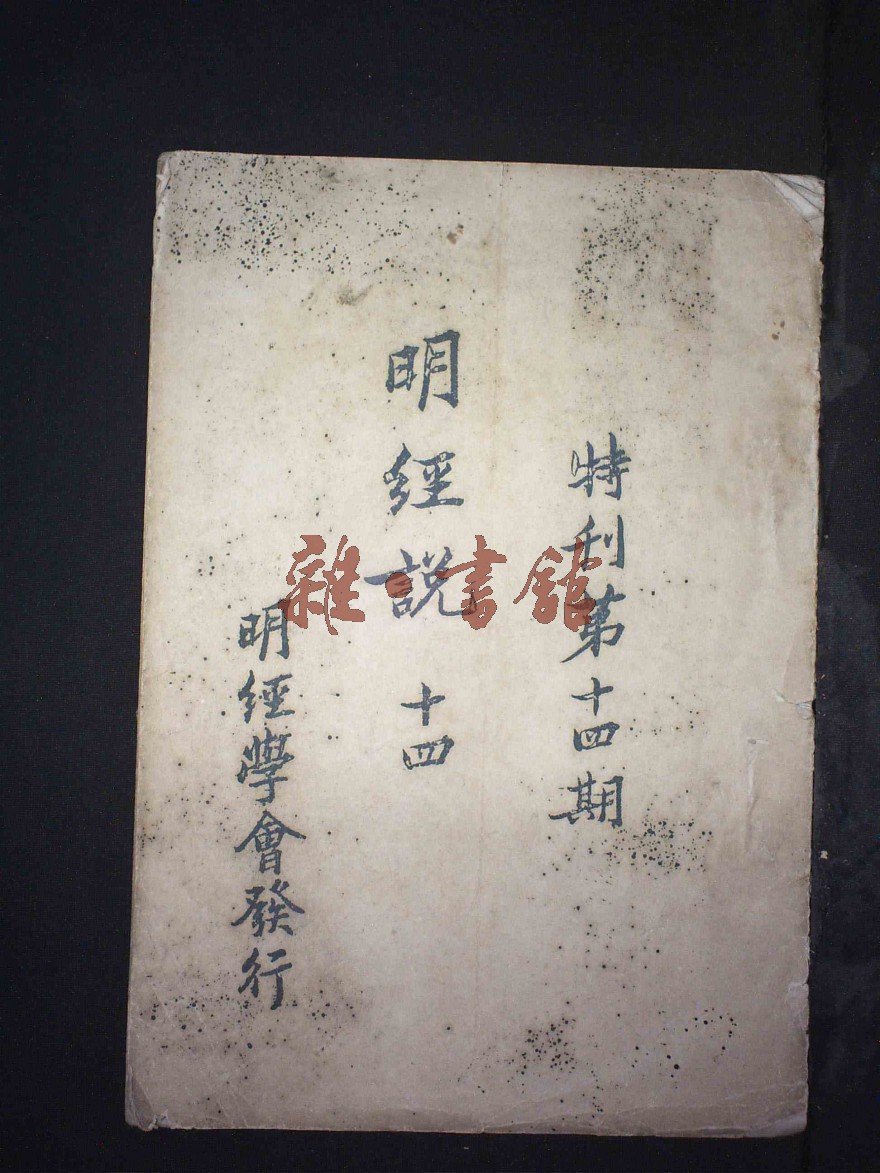 特刋第十四期
明經説 十四
明經學會發行
雜·書館